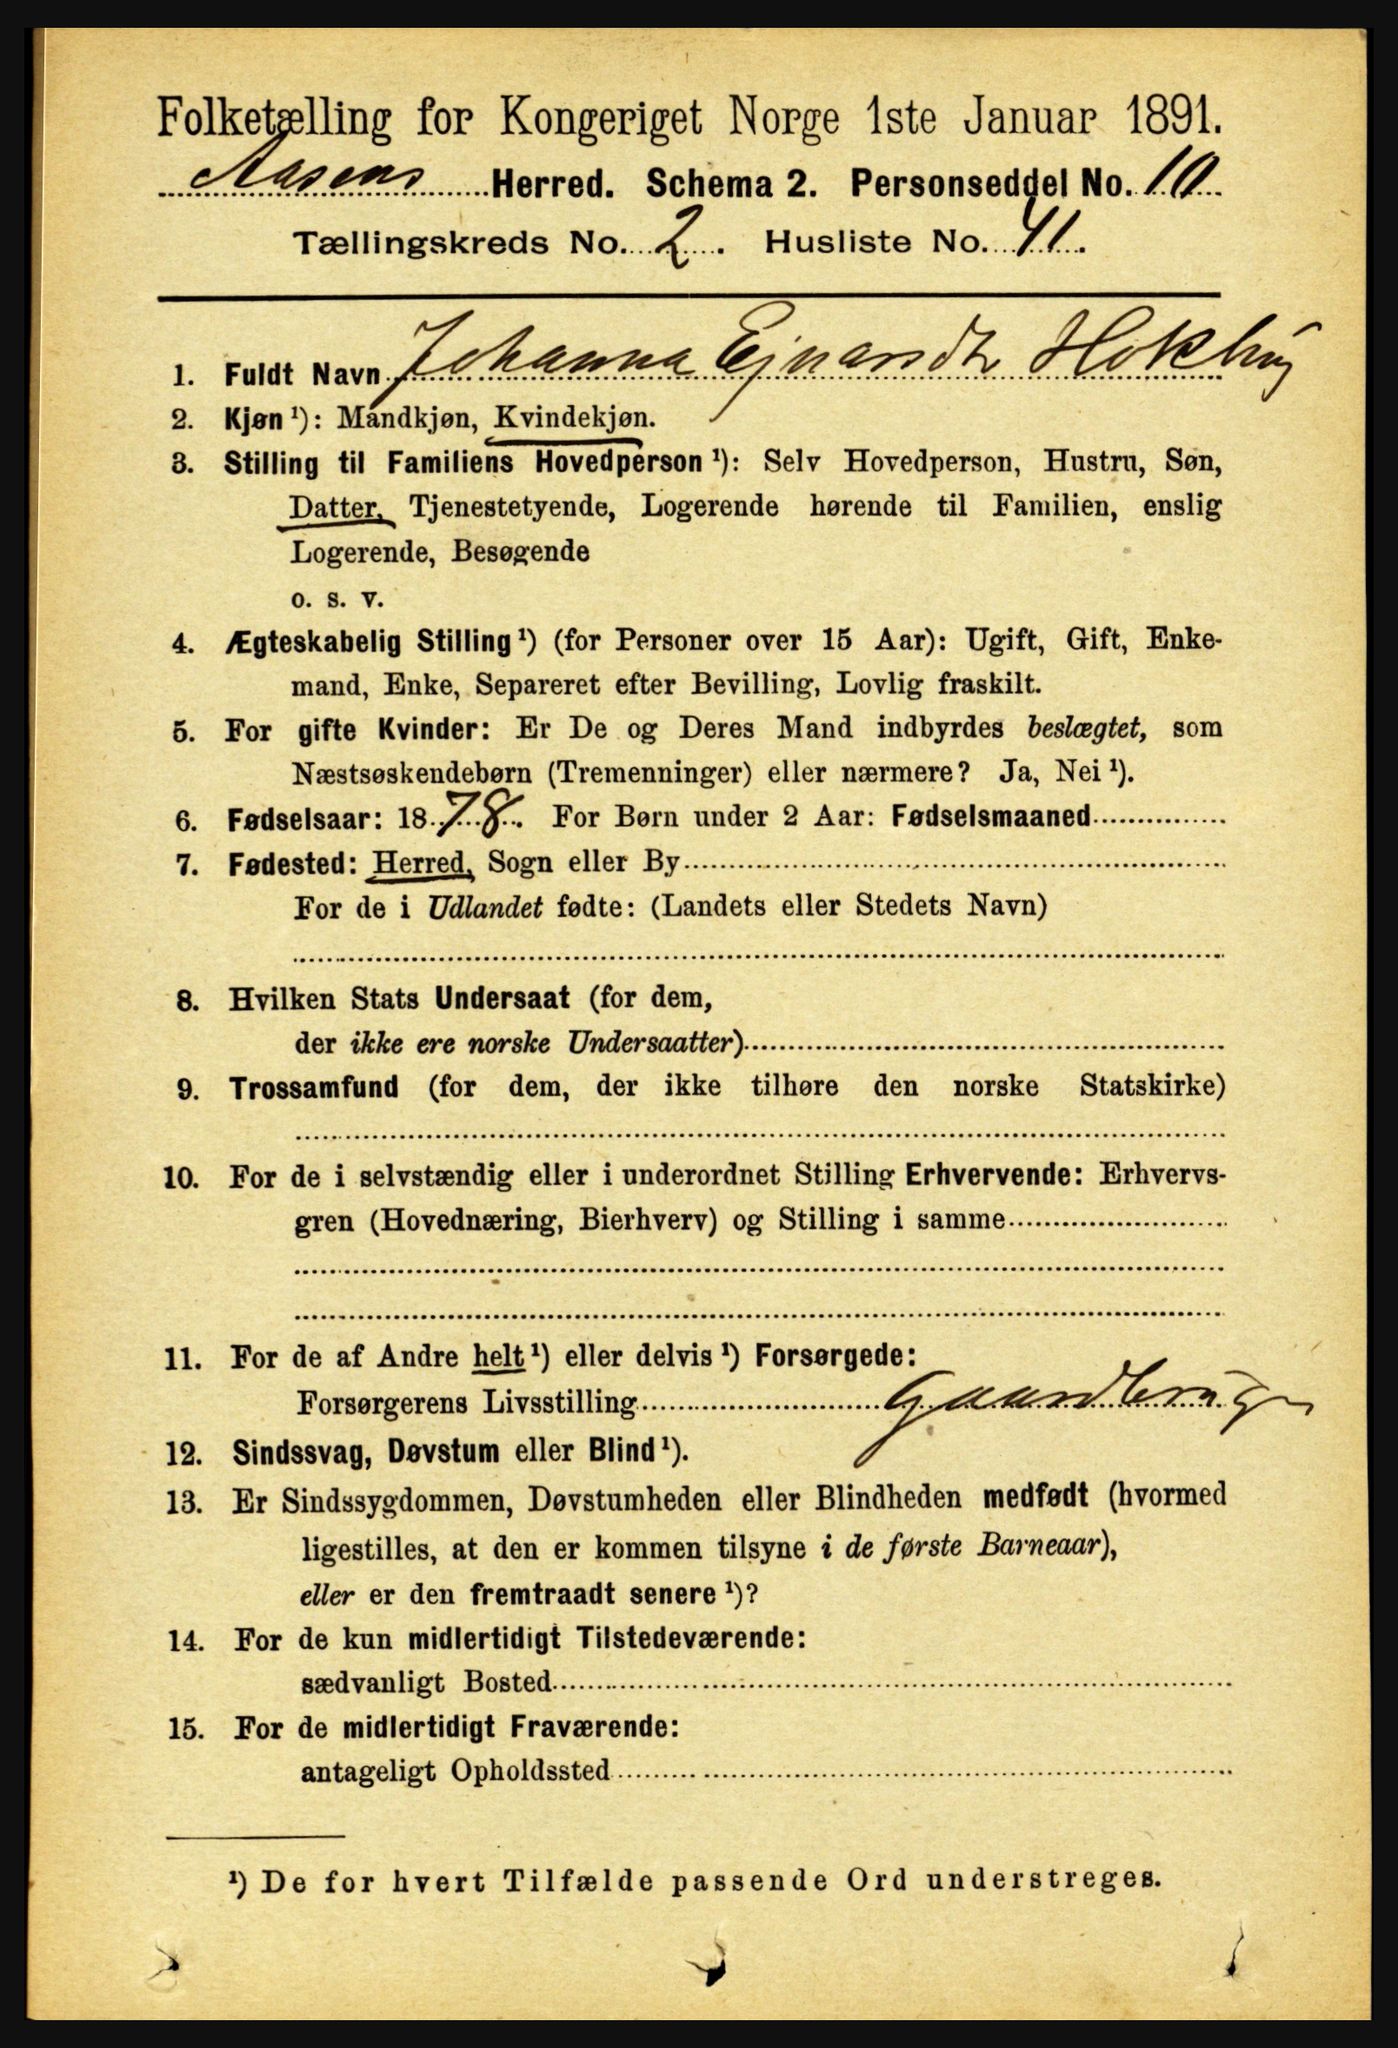 Folketælling for Kongeriget Norge 1ste Januar 1891.
Aasens Herred. Schema 2. Personseddel No. 10
Tællingskreds No. 2. Husliste No. 41.
1. Fuldt Navn Johanna Ejnarsdtr Hokling
2. Kjøn ¹): Mandkjøn, Kvindekjøn.
3. Stilling til Familiens Hovedperson ¹): Selv Hovedperson, Hustru, Søn,
Datter, Tjenestetyende, Logerende hørende til Familien, enslig
Logerende, Besøgende
o. s. v.
4. Ægteskabelig Stilling ¹) (for Personer over 15 Aar): Ugift, Gift, Enke-
mand, Enke, Separeret efter Bevilling, Lovlig fraskilt.
5. For gifte Kvinder: Er De og Deres Mand indbyrdes beslægtet, som
Næstsøskendebørn (Tremenninger) eller nærmere? Ja, Nei ¹).
6. Fødselsaar: 1878. For Børn under 2 Aar: Fødselsmaaned
7. Fødested: Herred, Sogn eller By
For de i Udlandet fødte: (Landets eller Stedets Navn)
8. Hvilken Stats Undersaat (for dem,
der ikke ere norske Undersaatter)
9. Trossamfund (for dem, der ikke tilhøre den norske Statskirke)
10. For de i selvstændig eller i underordnet Stilling Erhvervende: Erhvervs-
gren (Hovednæring, Bierhverv) og Stilling i samme
11. For de af Andre helt ¹) eller delvis ¹) Forsørgede:
Forsørgerens Livsstilling Gaardbruger
12. Sindssvag, Døvstum eller Blind ¹).
13. Er Sindssygdommen, Døvstumheden eller Blindheden medfødt (hvormed
ligestilles, at den er kommen tilsyne i de første Barneaar),
eller er den fremtraadt senere ¹)?
14. For de kun midlertidigt Tilstedeværende:
sædvanligt Bosted
15. For de midlertidigt Fraværende:
antageligt Opholdssted
¹) De for hvert Tilfælde passende Ord understreges.